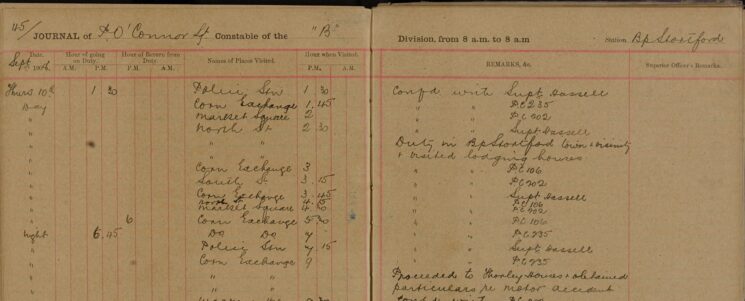 45/ JOURNAL of P. O'Connor St. Constable of the "B" Division, from 8 a.m. to 8 a.m Station Bp Stortford
Date. Hour of going on Duty. Hour of Return from Duty. Names of Places Visited. Hour when Visited. REMARKS, &c. Superior Officer's Remarks.
Sept 190 A.M. P.M. A.M. P.M. P.M. A.M.
Thurs 10th 1 30 Police Stn 1 30 Conf'd with Supt Hassell
Day Corn Exchange 1.45 " " PC 235
" Market Square 2 " " PC 202
" North St 2 30 " " Supt Hassell
" " " Duty in Bp Stortford town & vicinity
" " " & visited lodging houses
" Corn Exchange 3 " " PC 106
" South St 3.15 " " PC 202
" Corn Exchange 3.45 " " Supt Hassell
" North St 4.15 " " PC 106
" Market Square 4.30 " " PC 202
" 6 Corn Exchange 5 30 " " PC 106
Night 6.45 Do Do 7 " " PC 235
" Police Stn 7.15 " " Supt Hassell
" Corn Exchange 9 " " PC 235
" " " Proceeded to Thorley Houses & obtained
" " " particulars re motor accident